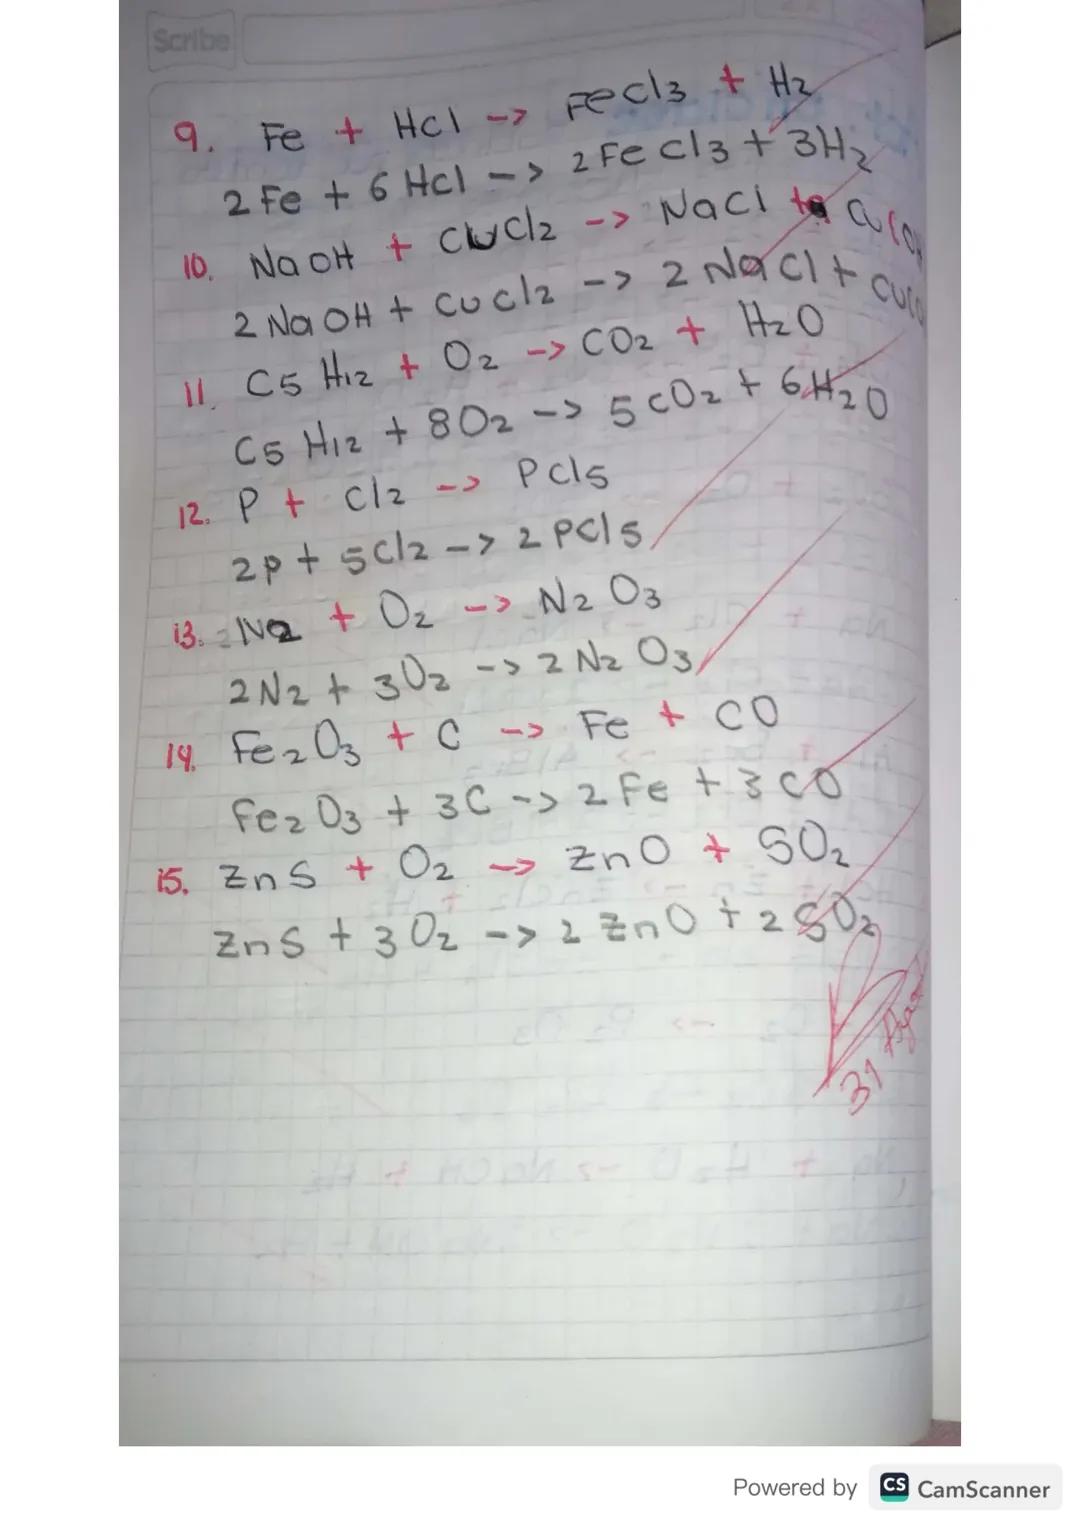 Scribe
9. Fe + HCl -> FeCl3 + H2
2 Fe + 6 HCl -> 2 FeCl3 + 3H2
10. NaOH + CuCl2 -> NaCl + Cu(OH
2 NaOH + CuCl2 -> 2 NaCl + Cu(O
11. C5 H12 + O2 -> CO2 + H2O
C5 H12 + 8O2 -> 5 CO2 + 6H2O
12. P + Cl2 -> PCl5
2P + 5Cl2 -> 2 PCl5
13. N2 + O2 -> N2 O3
2N2 + 3O2 -> 2 N2 O3
14. Fe2O3 + C -> Fe + CO
Fe2 O3 + 3C -> 2 Fe + 3 CO
15. ZnS + O2 -> ZnO + SO2
ZnS + 3O2 -> 2 ZnO + 2 SO2
31
Powered by CS CamScanner